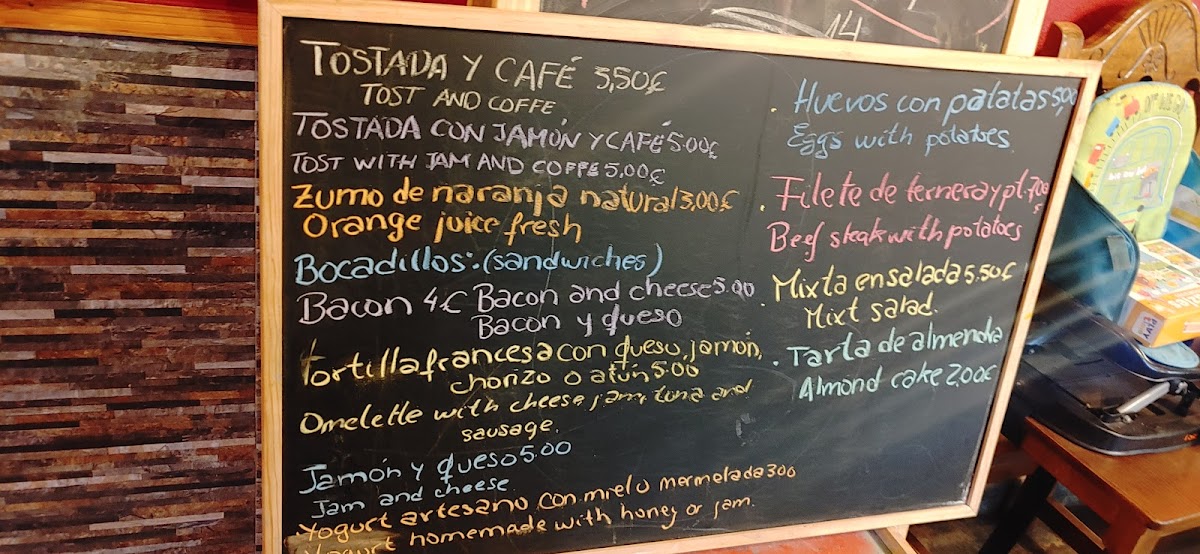 14
TOSTADA Y CAFÉ 3,50€
TOST AND COFFE
TOSTADA CON JAMÓN Y CAFÉ 5.00€
TOST WITH JAM AND COFFE 5,00€
Zumo de naranja natural 3,00€
Orange juice fresh
Bocadillos:(sandwiches)
Bacon 4€ Bacon and cheese 5.00
Bacon y queso
Tortilla francesa con queso, jamón,
chorizo o atún 5.00
Omelette with cheese, jam, tuna and
sausage.
Jamón y queso 5.00
Jam and cheese
Yogurt artesano con miel o mermelada 300
Yogurt homemade with honey or jam.
Huevos con patatas
Eggs with potatoes.
Filete de ternera y pt.
Beef steak with potatoes
Mixta ensalada 5,50€
Mixt salad.
Tarta de almendra
Almond cake 2,00€